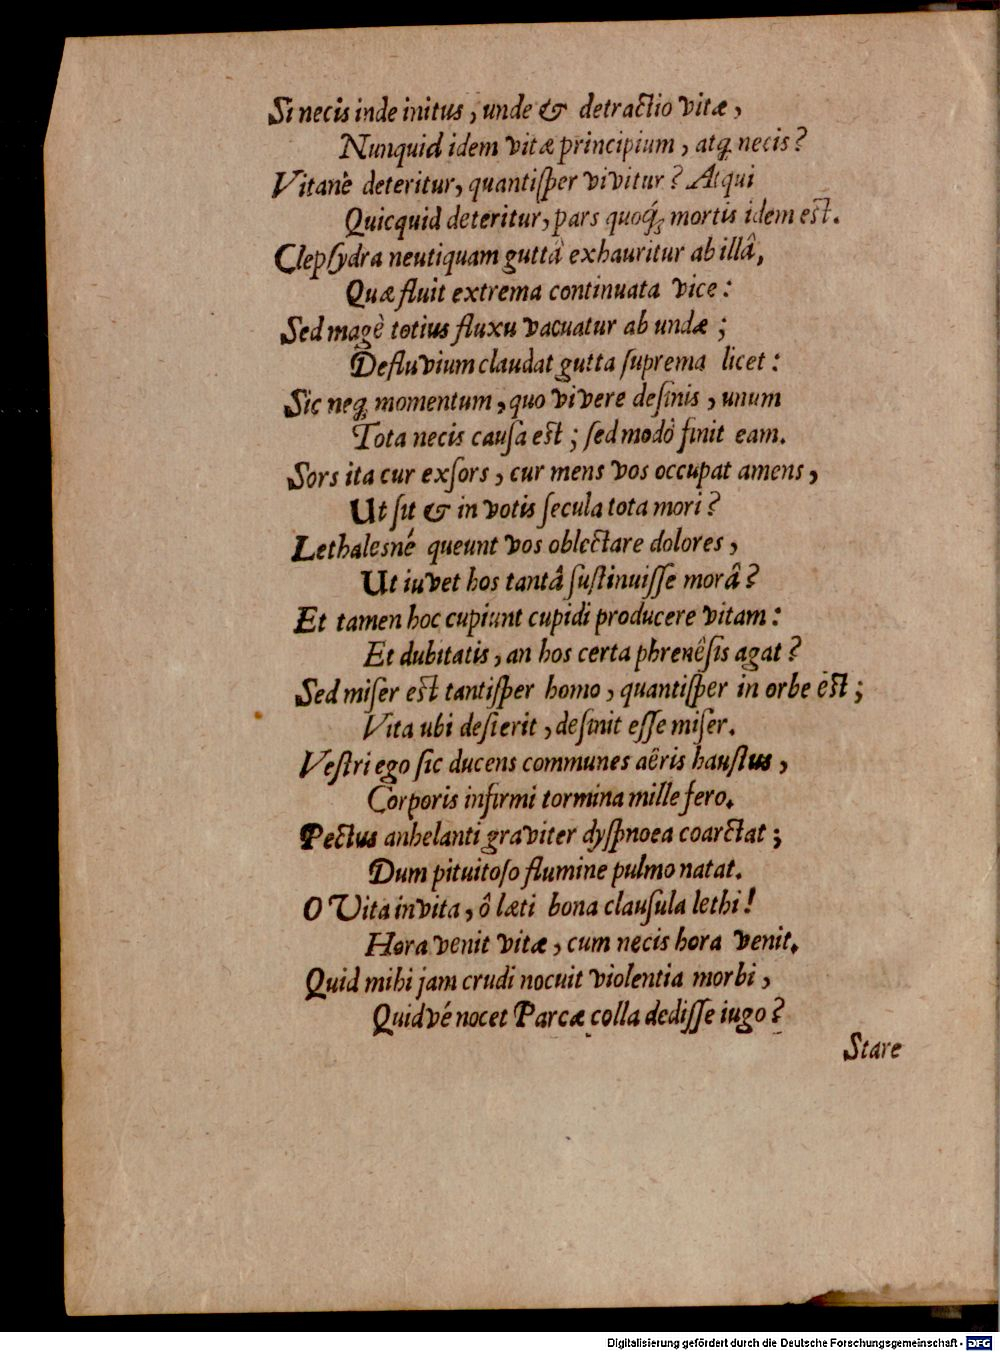 Si necis inde initus, unde & detractio vitæ,
Nunquid idem vitæ principium, atq; necis?
Vitanè deteritur, quantiſper vivitur? Atqui
Quicquid deteritur, pars quoq́; mortis idem est.
Clepſydra neutiquam guttâ exhauritur ab illâ,
Quæ fluit extrema continuata vice:
Sed magè totius fluxu vacuatur ab undæ;
Defluvium claudat gutta ſuprema licet:
Sic neq; momentum, quo vivere deſinis, unum
Tota necis cauſa est; ſed modò finit eam.
Sors ita cur exſors, cur mens vos occupat amens,
Ut ſit & in votis ſecula tota mori?
Lethalesné queunt vos oblectare dolores,
Ut iuvet hos tantâ ſuſtinuiſſe morâ?
Et tamen hoc cupiunt cupidi producere vitam:
Et dubitatis, an hos certa phrenêſis agat?
Sed miſer est tantiſper homo, quantiſper in orbe est;
Vita ubi deſierit, deſinit eſſe miſer.
Veſtri ego ſic ducens communes aëris hauſtus,
Corporis infirmi tormina mille fero.
Pectus anhelanti graviter dyſpnoea coarctat;
Dum pituitoſo flumine pulmo natat.
O Vita invita, ô læti bona clauſula lethi!
Hora venit vitæ, cum necis hora venit.
Quid mihi jam crudi nocuit violentia morbi,
Quidvé nocet Parcæ colla dediſſe iugo?
Stare
Digitalisierung gefördert durch die Deutsche Forschungsgemeinschaft - DFG